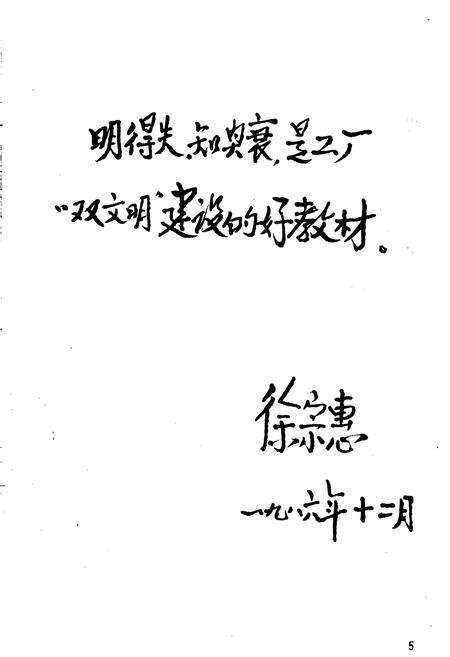 明得失、知兴衰，是工厂
“双文明”建设的好教材。
徐宗惠
一九八六年十二月
5